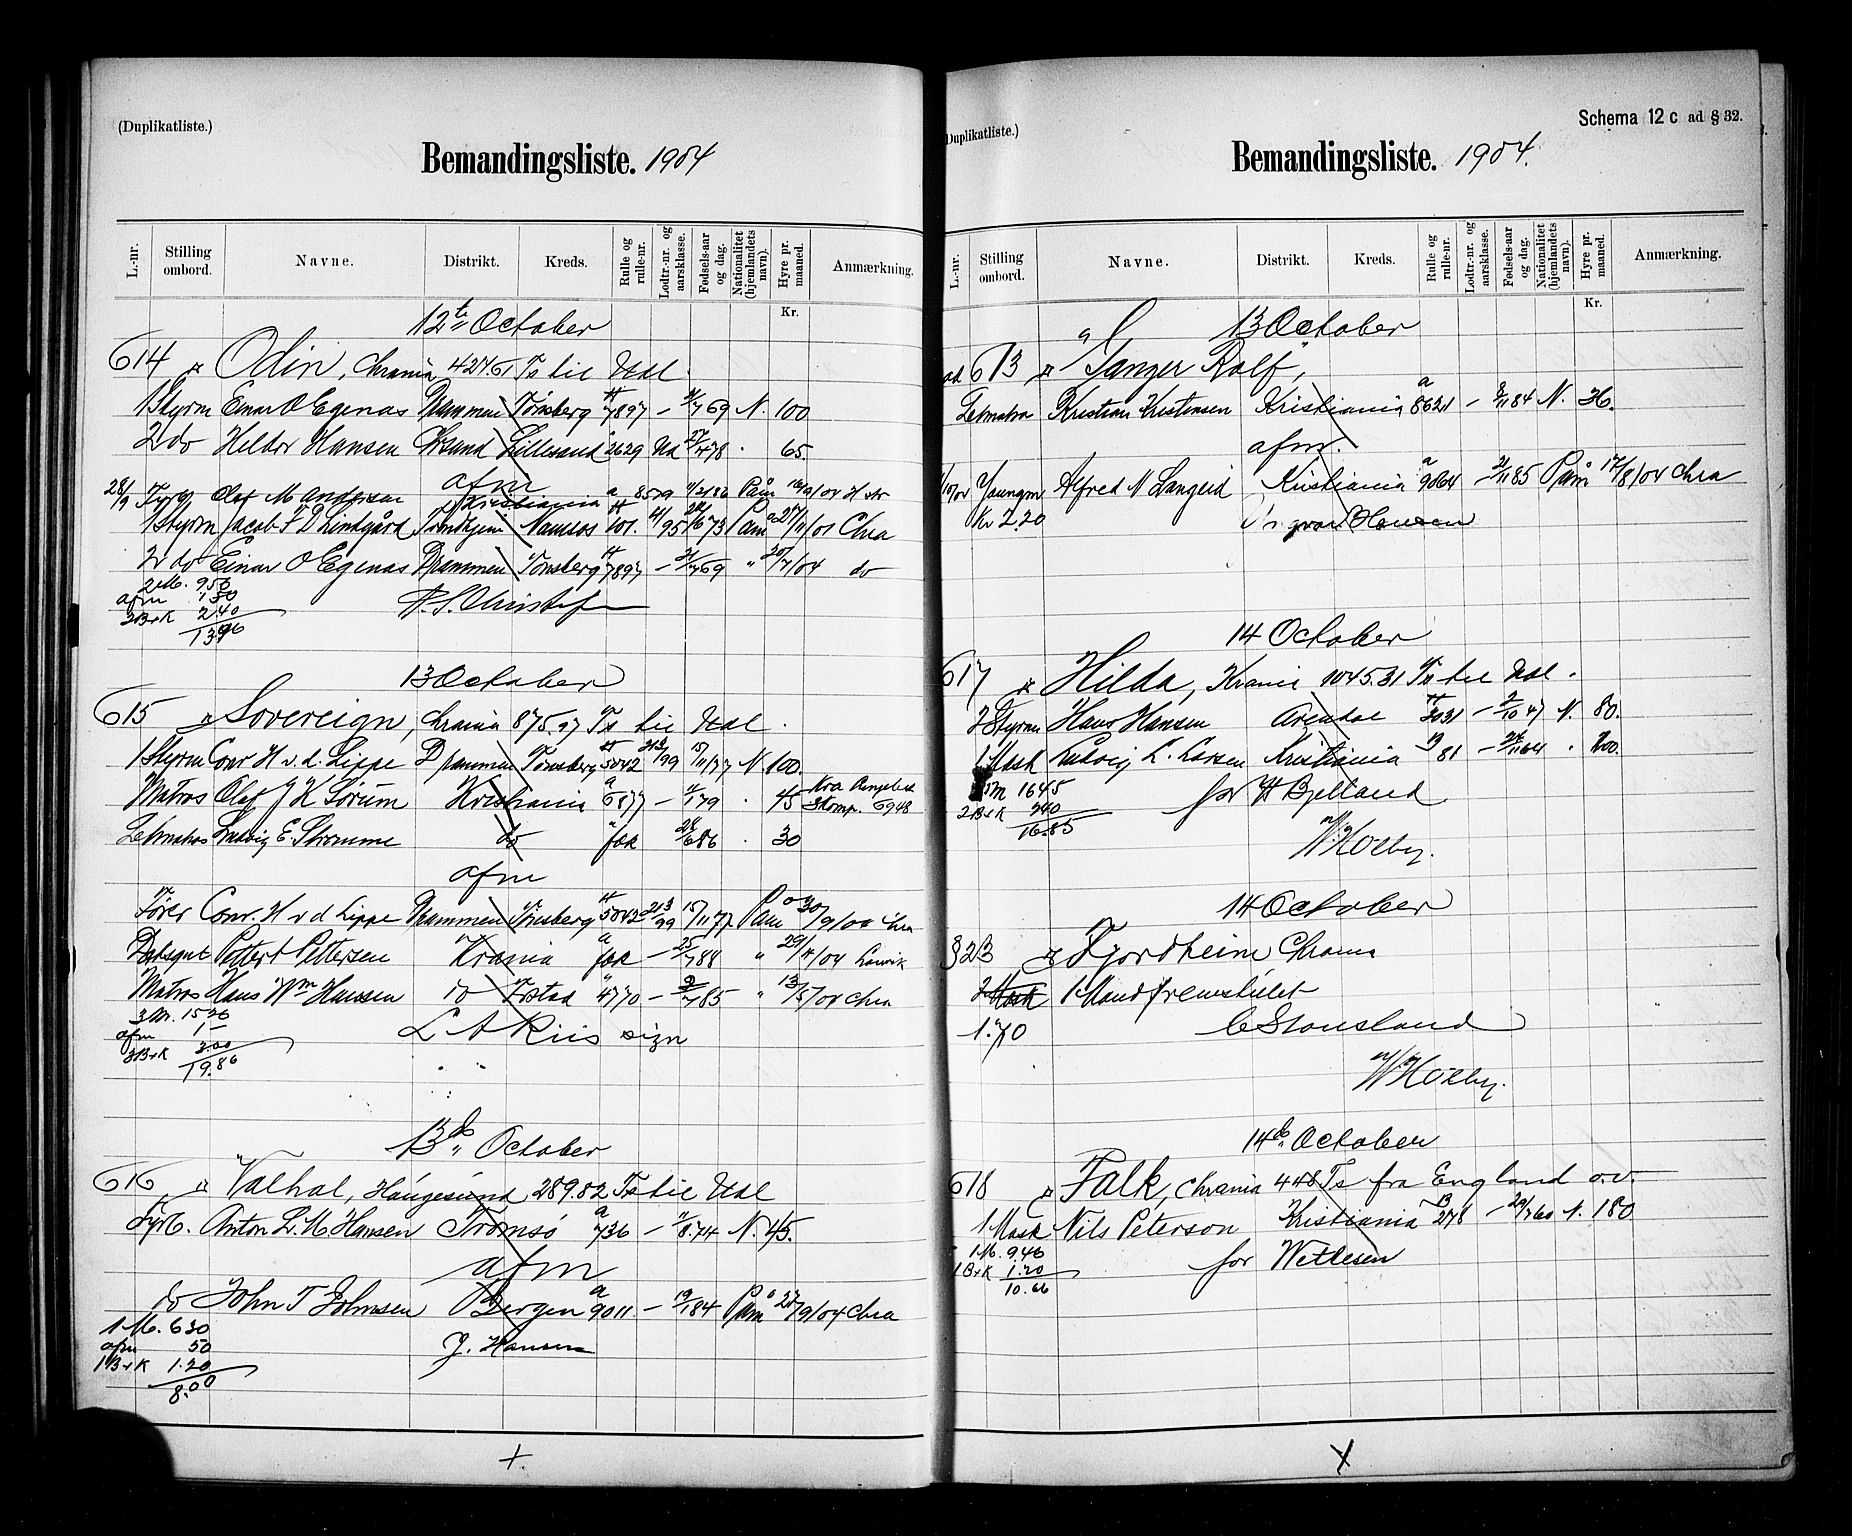 (Duplikatliste.)
Bemandingsliste. 1904
L.-nr. Stilling ombord. Navne. Distrikt. Kreds. Rulle og rulle-nr. Lodtr.-nr. og aarsklasse. Fødsels-aar og dag. Nationalitet (hjemlandets navn). Hyre pr. maaned. Anmærkning.
Kr.
12te October
614 Odin, Chrania 424.61 Ts til Udl
1 Styrm Einar O Egenas Drammen Tønsberg 7897 — 21/7 69 N. 100
2 do Hildor Hansen Chrsand Lillesand 2629 Ud 27/4 78 65.
afm
28/9 Fyrb. Olaf M Andersen Kristiania a 8579 Påm
1 Styrm Jacob F D Lindgård Trondhjem Namsos 101. 41/95 Påm 01 Chra
2 do Einar O Egenas Drammen Tønsberg 7897 — 21/7 69 " 20/7/04 do
2 M. 950
afm 150
2B+K 2.40
13.90
13 October
615 Sovereign, Chrania 875.97 Ts til Udl.
1 Styrm Conr H v. d. Lippe Drammen Tønsberg 5042 213/99 15/11 77 N 100.
Matros Olaf J K Sorum Kristiania a 6877 — 1/1 79 45
Letmatros Ludvig E. Stromme do " fok 28/6 86 . 30
afm
Fører Conr. H v d Lippe Drammen Tønsberg 5042 213/99 15/11 77 Påm 30/9/00 Chra
Dæksgut Pettert Pettersen Krania a fok — 25/7 88 " 29/4/04 Larvik
Matros Hans Wm Hanssen do Fstad " 4770 — 2/7 85 " 13/5/04 Chra
3 M. 15
afm 1—
3B+K 3.00
19.86
L A Riis sign
13de October
616 Valhal, Haugesund 289.82 Ts til Udl
Fyrb. Anton L. M Hansen Tromsø a 736 — 11/8. 74 N. 45.
afm
do John T Johnsen Bergen a 9011. — 19/1 84 Påm 27/9/04 Chra
1 M. 630
afm 50
1B+K 1.20
8.00
J. Hansen
(Duplikatliste.)
Schema 12 c ad § 32.
Bemandingsliste. 1904.
L.-nr. Stilling ombord. Navne. Distrikt. Kreds. Rulle og rulle-nr. Lodtr.-nr. og aarsklasse. Fødsels-aar og dag. Nationalitet (hjemlandets navn). Hyre pr. maaned. Anmærkning.
Kr.
13 October
ad 613 "Ganger Rolf",
Letmatro Kristian Kristensen Kristiania a 8621 — 3/11 84 N. 36.
afm.
Youngm Alfred N Langeid Kristiania a 9064 — 21/11 85 Påm 17/8/04 Chra
Kr 2.20
14 October
617 Hilda, Krania 1045.31 Ts til Udl.
2 Styrm Hans Hansen Arendal 3031 — 2/10 47 N. 80.
1 Mask Ludvig L. Larsen Kristiania 81 — 64 . 200.
1645
2B+K 240
16.85
for H Bjelland
W. Holby.
14 October
§ 23 Fjordheim Chrania
2 Mask 1 Mand fremstillet
1.70 C Stousland
W. Holby.
14de October
618 Falk, Chrania 448 Ts fra England o.v.
1 Mask Nils Peterson Kristiania 278 — 29/7 60 N. 180
1 M. 9.46
1B+K 1.20
10.66
for Wettesen